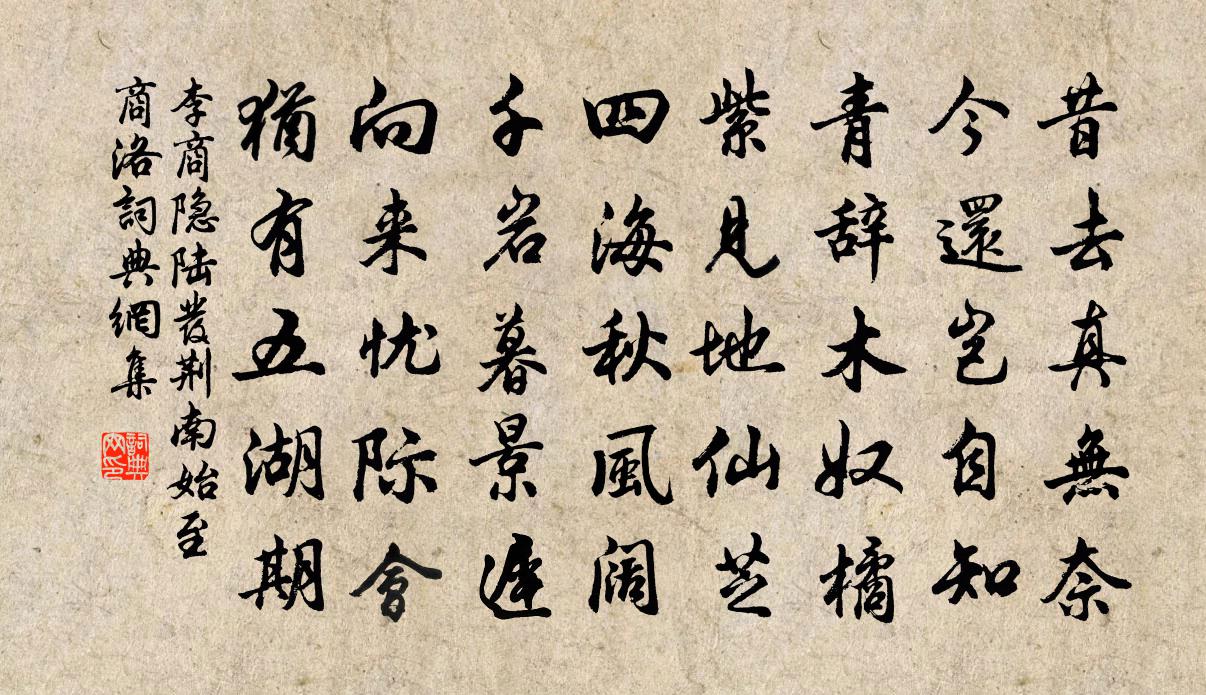 昔去真無奈
今還岂自知
青辞木奴橘
紫見地仙芝
四海秋風阔
千岩暮景遲
向来忧际會
猶有五湖期
李商隐陆發荆南始至
商洛詞典網集
詞典网印